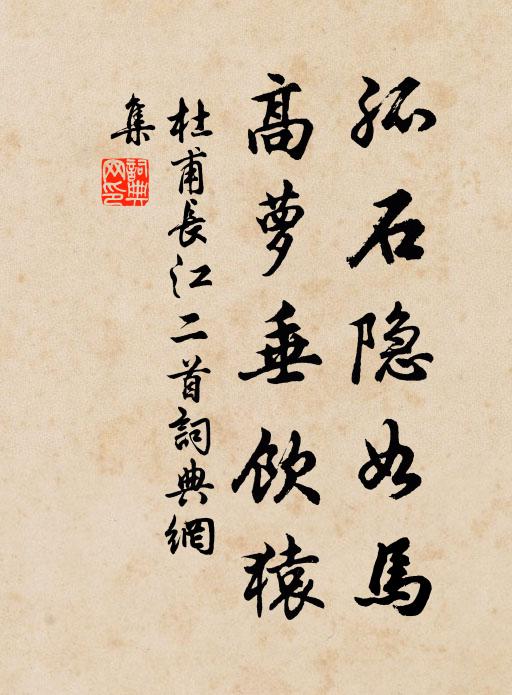 孤石隐如馬
高萝垂饮猿
杜甫長江二首詞典網
集
詞典网印